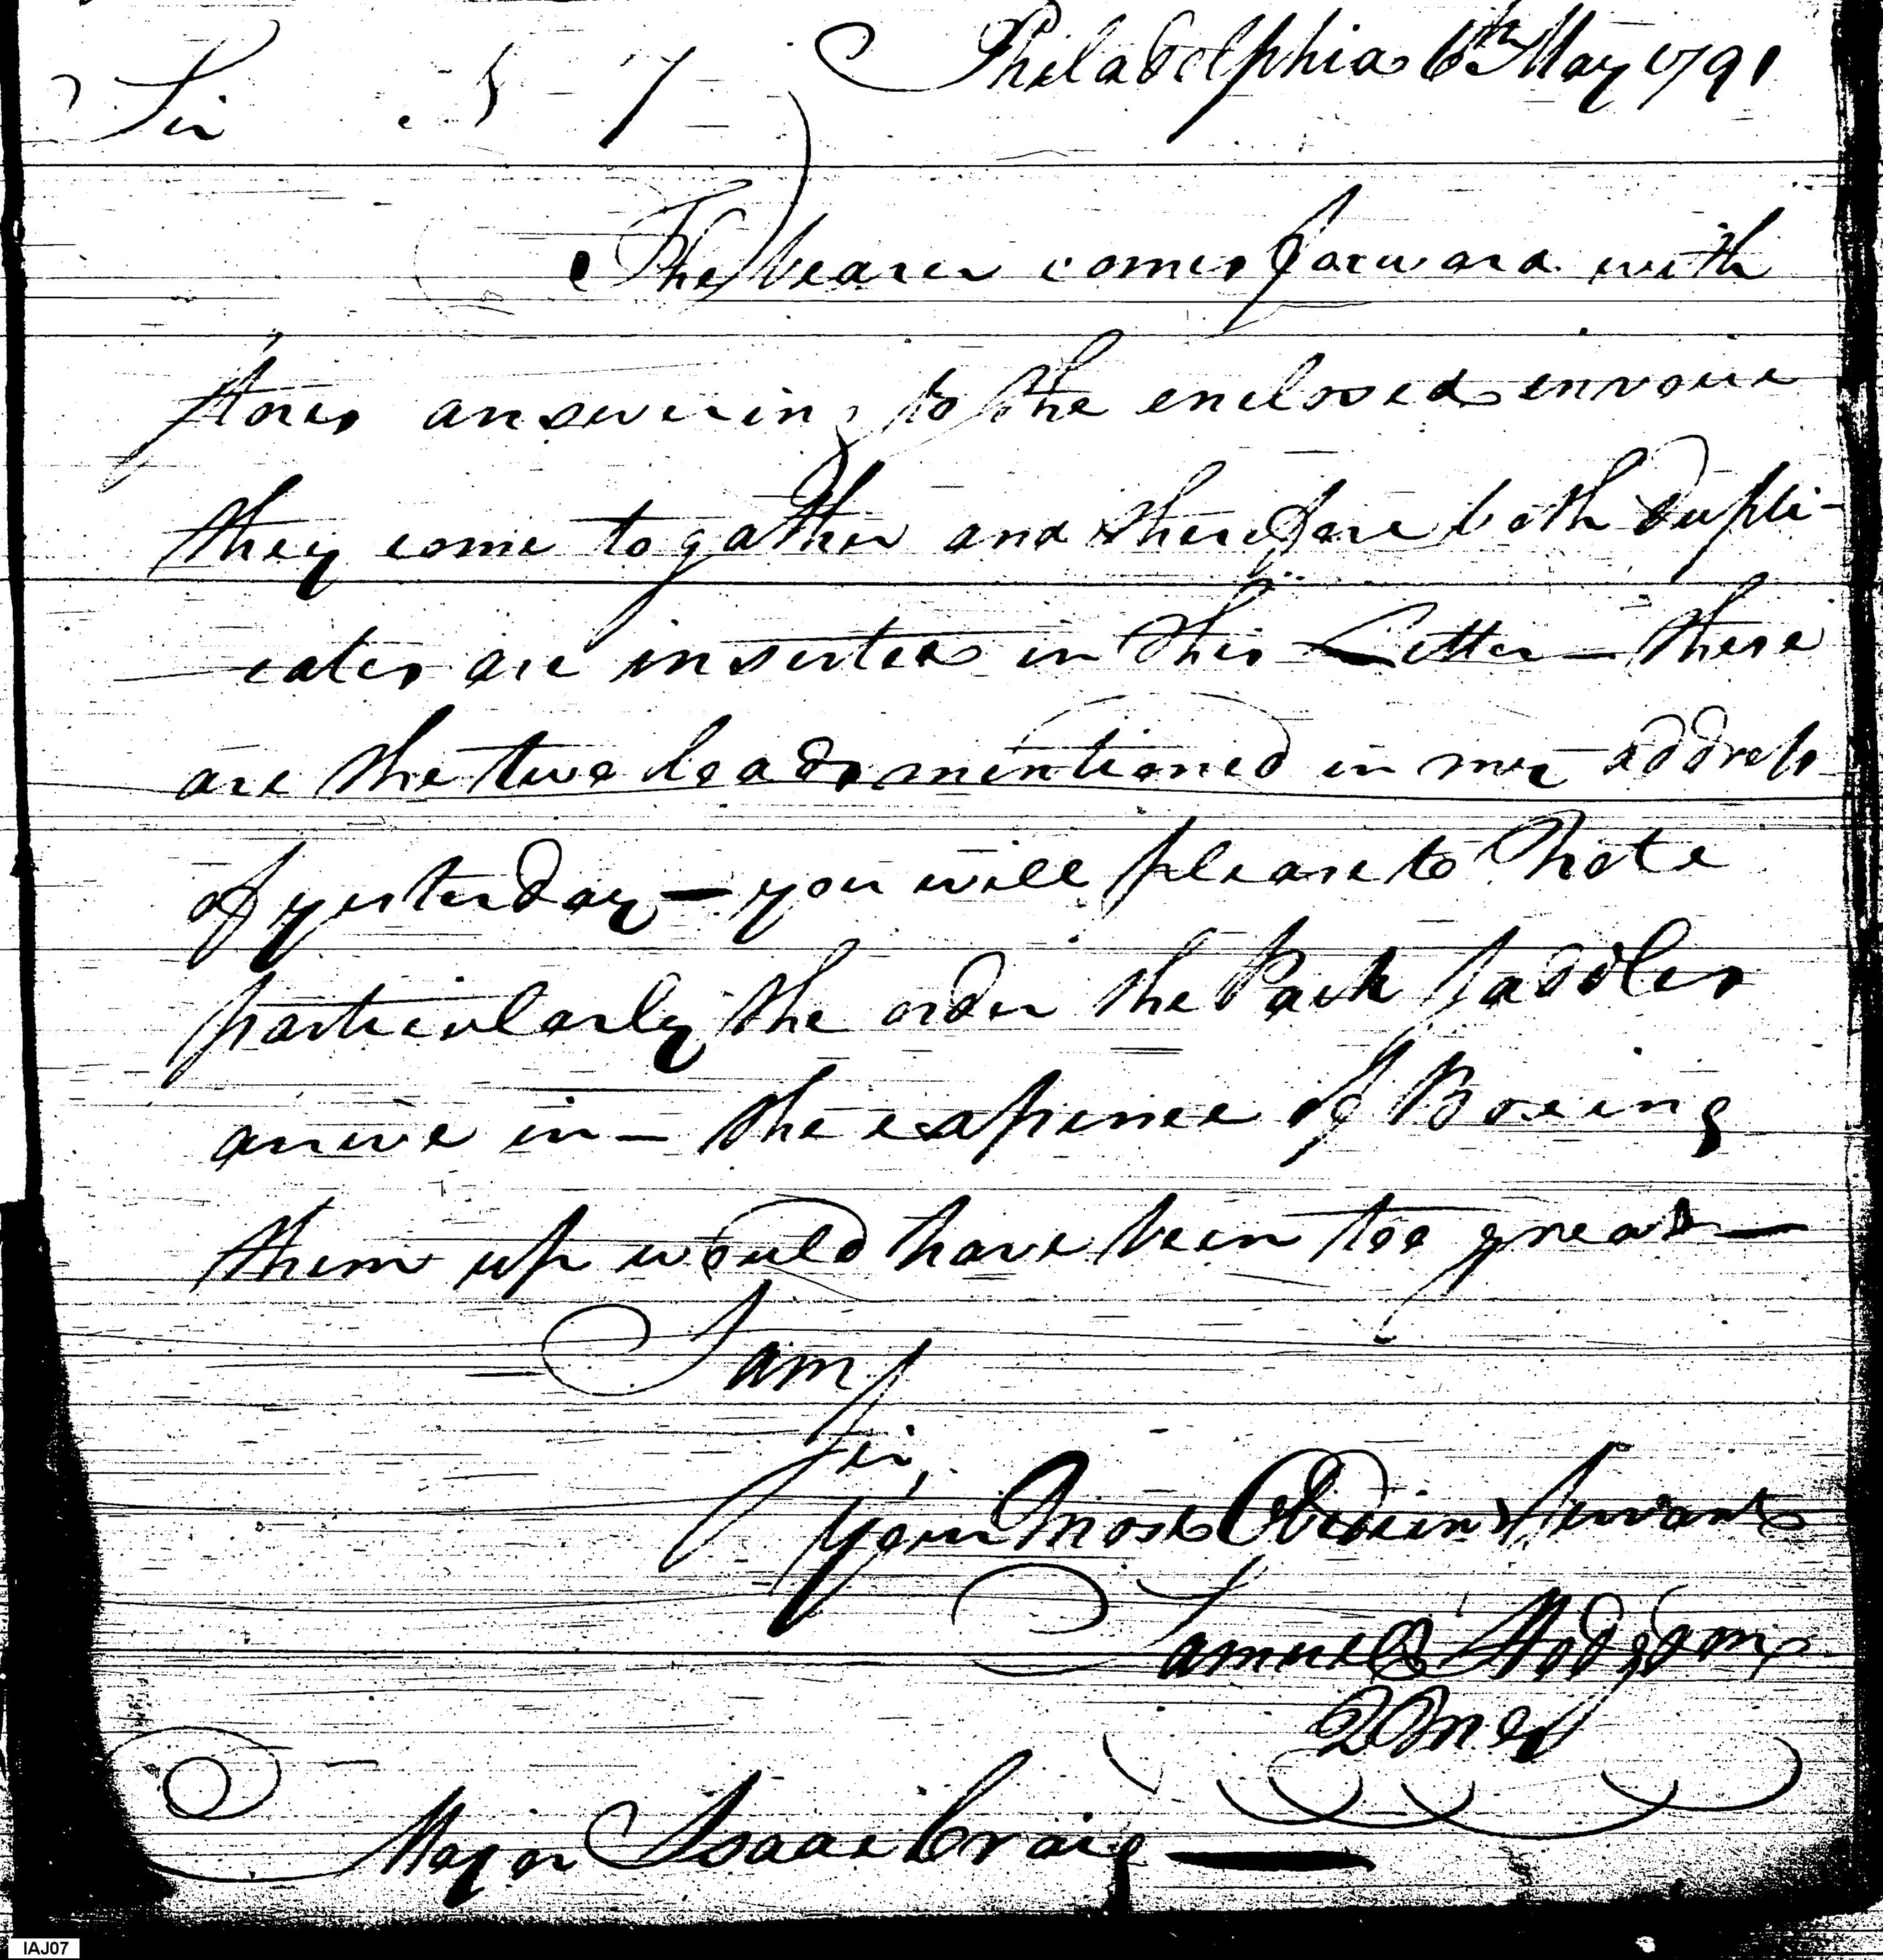 Philadelphia 6th May 1791
Sir
The bearer comes forward with
stores answering to the enclosed invoice
they come togather and therefore both dupli-
-cates are inserted in this Letter — these
are the two loads mentioned in my address
of yesterday — you will please to Note
particularly the order the Pack saddles
arrive in — the expence of Boxing
them up would have been too great —
I am
Sir,
Your Most Obedient Servant
Samuel Hodgdon
QMG
Major Isaac Craig
IAJ07